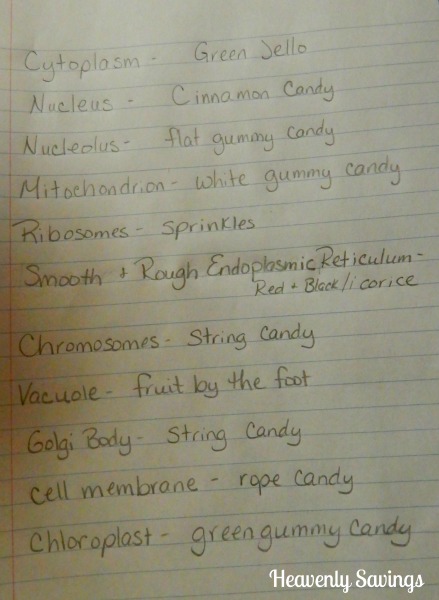 Cytoplasm - Green Jello
Nucleus - Cinnamon Candy
Nucleolus - flat gummy candy
Mitochondrion - white gummy candy
Ribosomes - Sprinkles
Smooth + Rough Endoplasmic Reticulum -
Red + Black licorice
Chromosomes - String Candy
Vacuole - fruit by the foot
Golgi Body - String Candy
Cell membrane - rope candy
Chloroplast - green gummy candy
Heavenly Savings